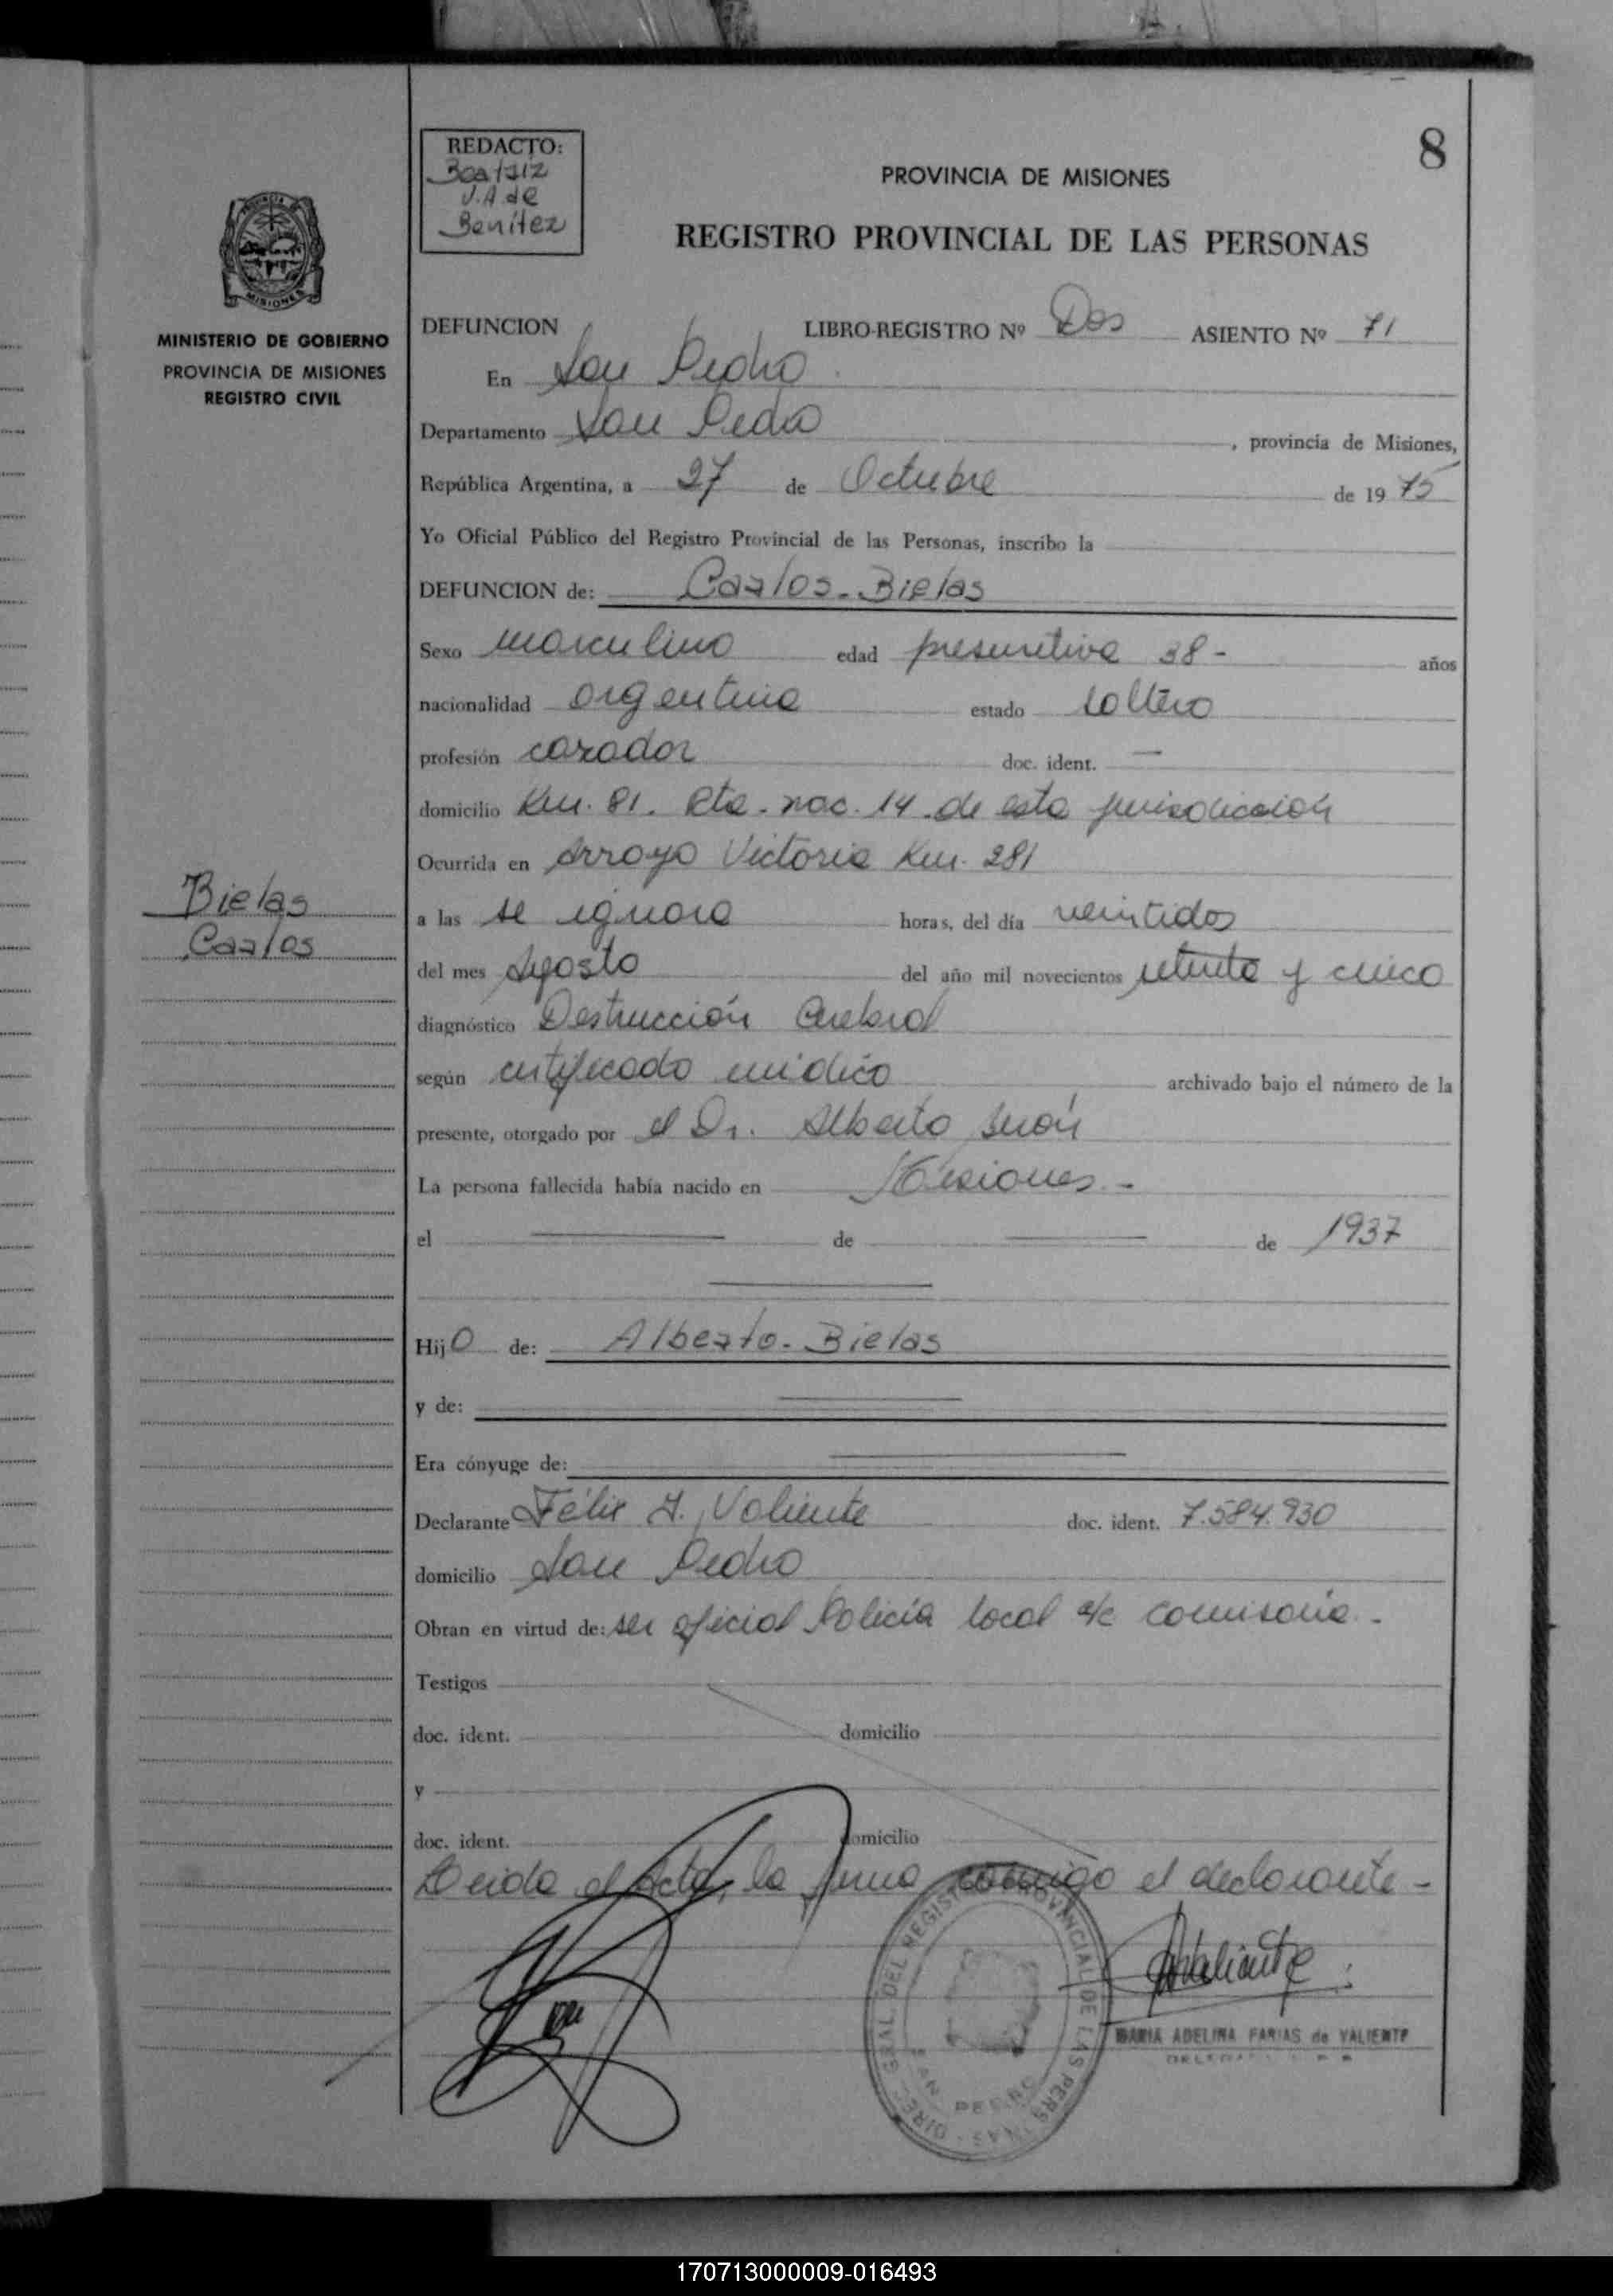 8
REDACTO:
Beatriz
V.A de
Benítez
PROVINCIA DE MISIONES
REGISTRO PROVINCIAL DE LAS PERSONAS
MISIONES
MINISTERIO DE GOBIERNO
PROVINCIA DE MISIONES
REGISTRO CIVIL
DEFUNCION LIBRO-REGISTRO Nº Dos ASIENTO Nº 71
En San Pedro
Departamento San Pedro, provincia de Misiones,
República Argentina, a 27 de Octubre de 1975
Yo Oficial Público del Registro Provincial de las Personas, inscribo la
DEFUNCION de: Carlos-Bielas
Sexo masculino edad presuntiva 38- años
nacionalidad argentina estado soltero
profesión cazador doc. ident. —
domicilio Km. 81. Rta. nac. 14 de esta jurisdicción
Ocurrida en Arroyo Victoria Km. 281
Bielas
Carlos
a las se ignora horas, del día veintidos
del mes Agosto del año mil novecientos setenta y cinco
diagnóstico Destrucción Cerebral
según certificado médico archivado bajo el número de la
presente, otorgado por el Dr. Alberto
La persona fallecida había nacido en Misiones.-
el — de — de 1937
Hijo de: Alberto-Bielas
y de: —
Era cónyuge de: —
Declarante Félix A. Valiente doc. ident. 7.584.930
domicilio San Pedro
Obran en virtud de: ser oficial Policía local a/c comisaría.-
Testigos
doc. ident. domicilio
y
doc. ident. domicilio
Leida el Acta, la firma conmigo el declarante-
DIREC. GRAL. DEL REGISTRO PROVINCIAL DE LAS PERSONAS
SAN PEDRO
MARIA ADELINA FARIAS de VALIENTE
170713000009-016493